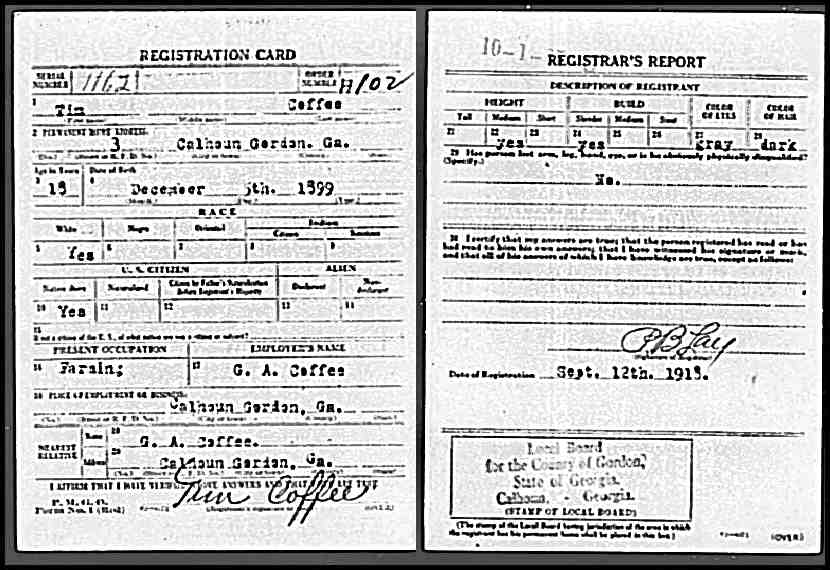 REGISTRATION CARD
SERIAL NUMBER 1162
ORDER NUMBER A102
1 Tim Coffee
(First name) (Middle name) (Last name)
2 PERMANENT HOME ADDRESS:
3 Calhoun Gordon. Ga.
Age in Years Date of Birth
3 18 4 December 5th. 1899
RACE
White Negro Oriental Indian
Citizen
5 Yes 6 7 8 9
U. S. CITIZEN ALIEN
Native Born Naturalized Citizen by Father's Naturalization Before Registrant's Majority Declarant Non-declarant
10 Yes 11 12 13 14
15
If not a citizen of the U. S., of what nation are you a citizen or subject?
PRESENT OCCUPATION EMPLOYER'S NAME
16 17 G. A. Coffee
18 PLACE OF EMPLOYMENT OR BUSINESS:
Calhoun Gordon, Ga.
NEAREST RELATIVE
Name 19 G. A. Coffee.
Address 20 Calhoun Gordon, Ga.
I AFFIRM THAT I HAVE VERIFIED ABOVE ANSWERS AND THAT THEY ARE TRUE
Tim Coffee
P. M. G. O.
Form No. 1 (Red) (OVER)
10-1-
REGISTRAR'S REPORT
DESCRIPTION OF REGISTRANT
HEIGHT BUILD COLOR OF EYES COLOR OF HAIR
Tall Medium Short Slender Medium Stout
21 22 yes 23 24 yes 25 26 27 gray 28 dark
29 Has person lost arm, leg, hand, eye, or is he obviously physically disqualified?
(Specify.)
No.
30 I certify that my answers are true; that the person registered has read or has
had read to him his own answers; that I have witnessed his signature or mark,
and that all of his answers of which I have knowledge are true, except as follows:
P B Lay
Date of Registration Sept. 12th. 1918.
Local Board
for the County of Gordon,
State of Georgia.
Calhoun, - Georgia.
(STAMP OF LOCAL BOARD)
(The stamp of the Local Board having jurisdiction of the area in which
the registrant has his permanent home shall be placed in this box.)
(OVER)